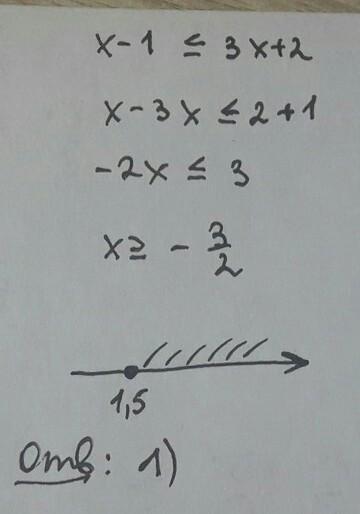 x-1 ≤ 3x+2
x-3x ≤ 2+1
-2x ≤ 3
x ≥ - 3/2
1,5
Отв: 1)